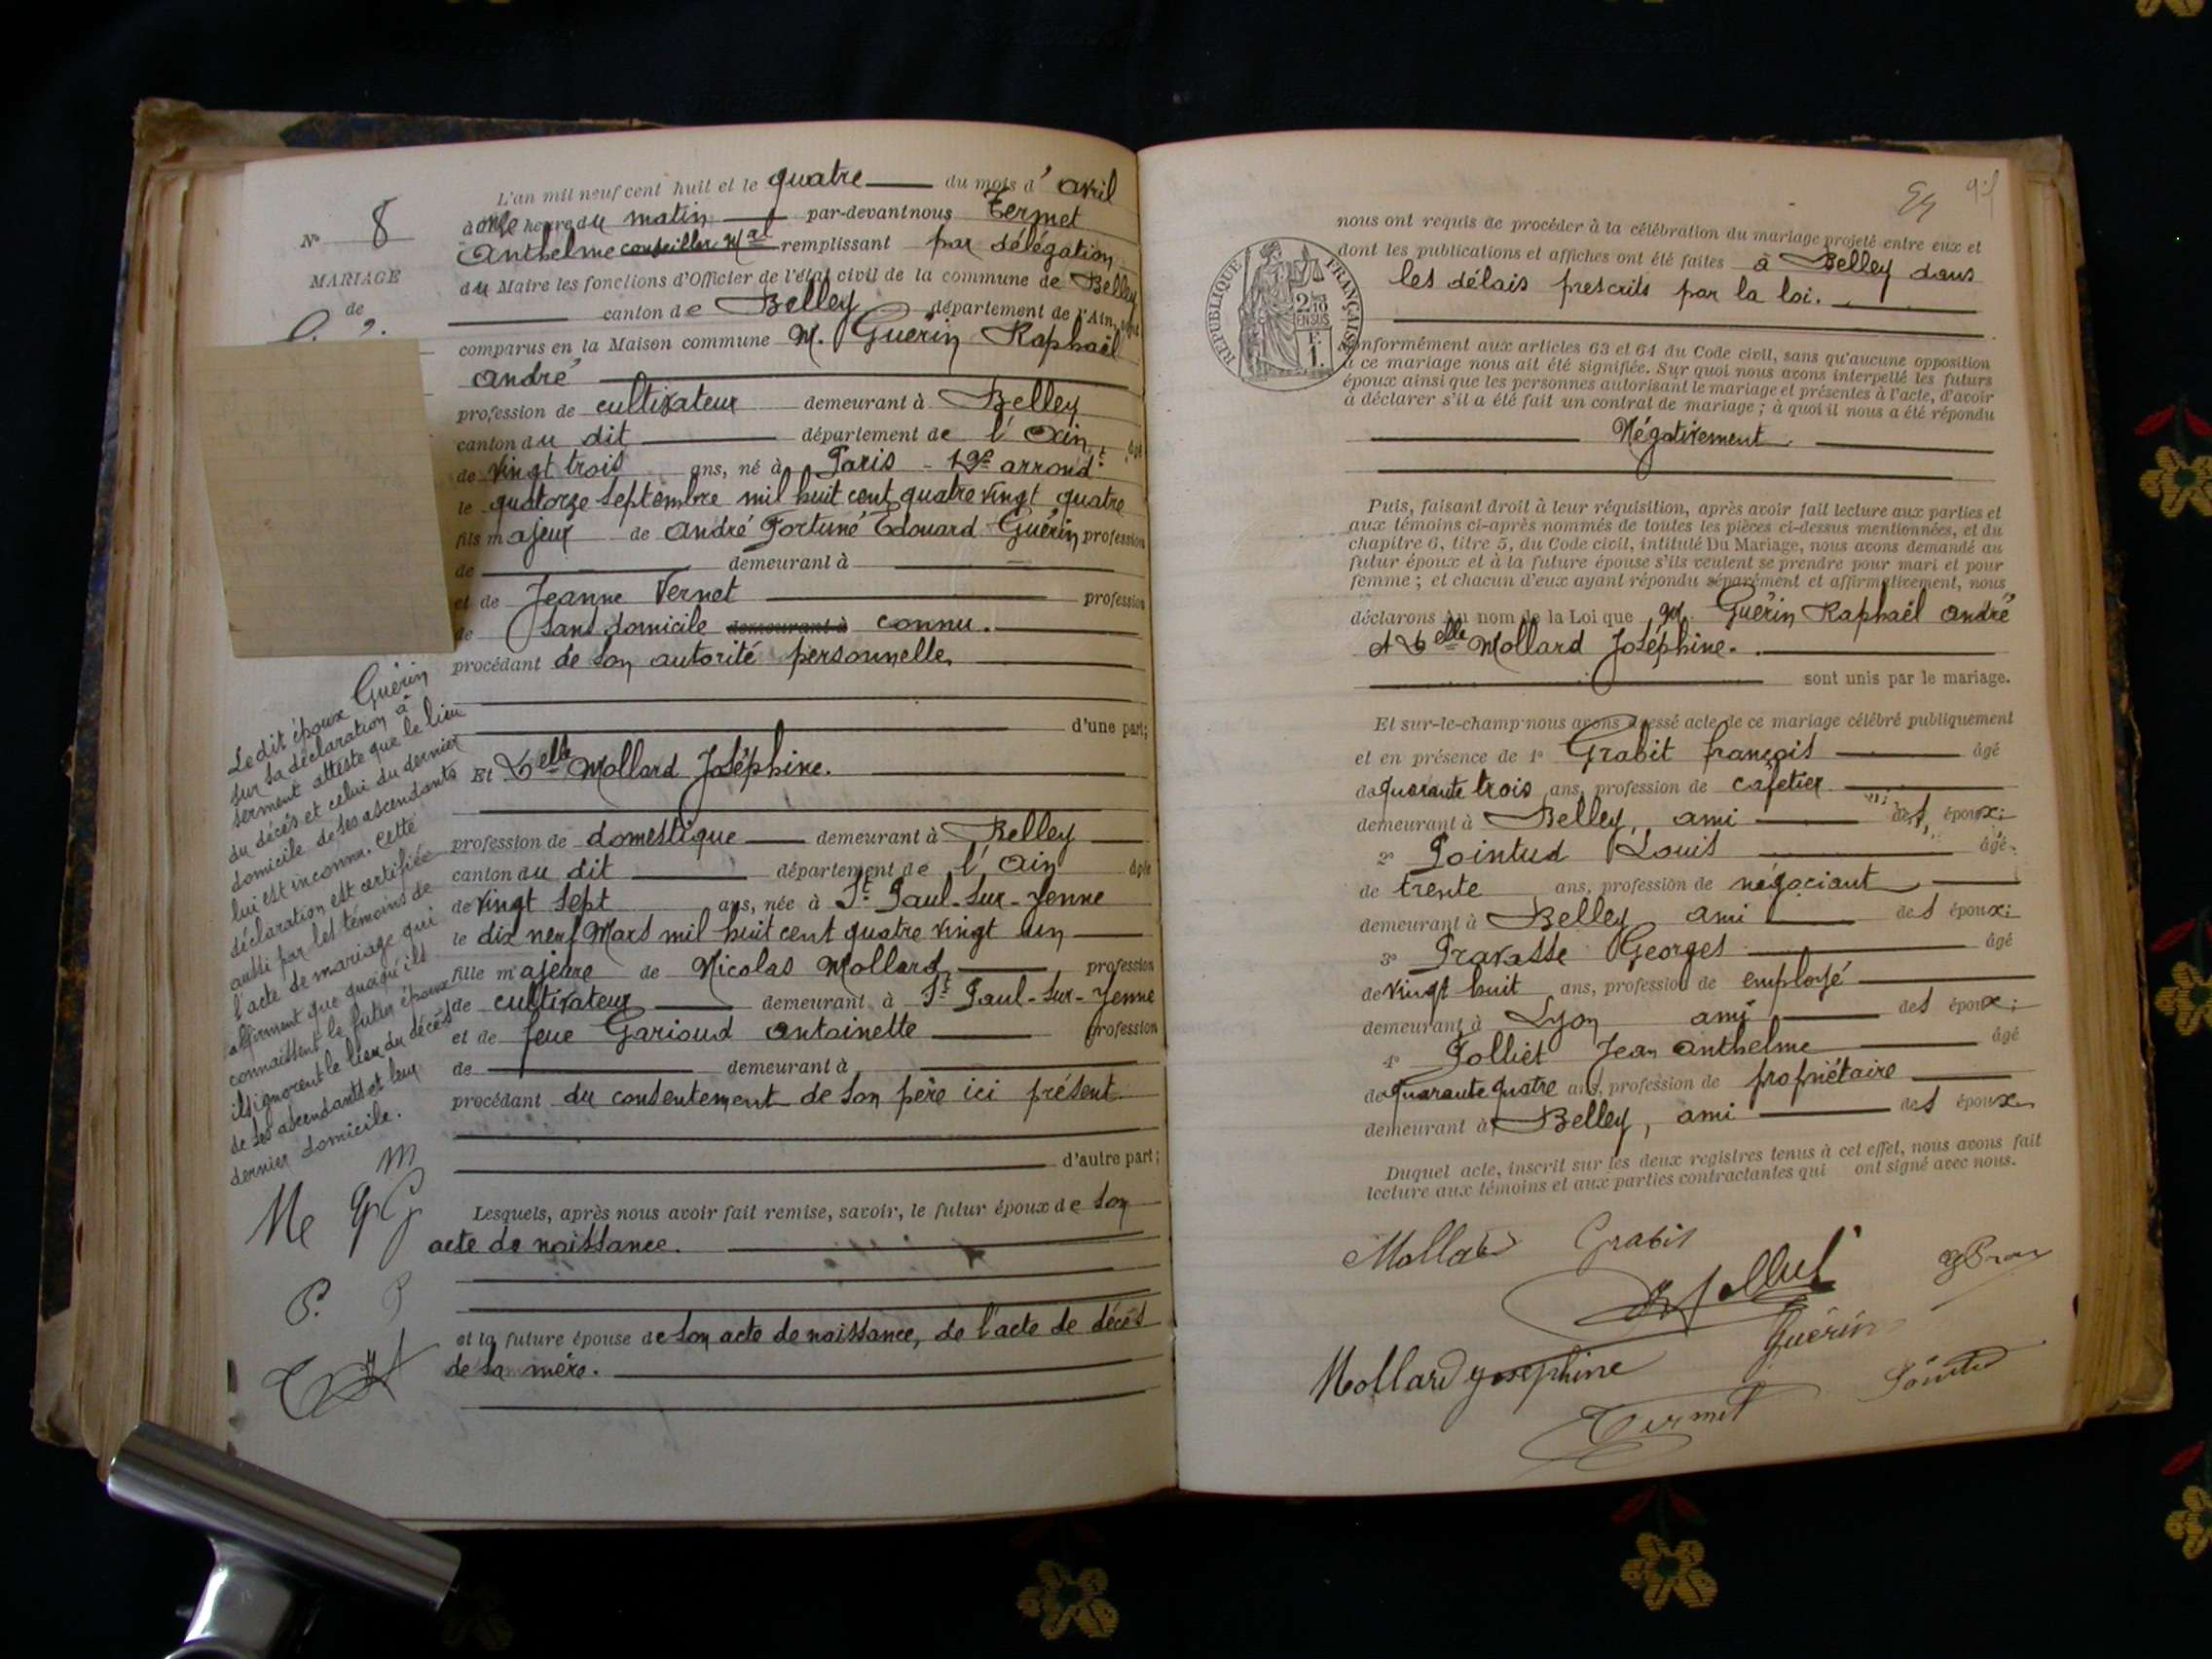 N° 8
MARIAGE
de
L'an mil neuf cent huit et le quatre du mois d'avril
à onze heure du matin par-devant nous Termet
Anthelme conseiller Mal remplissant par délégation
du Maire les fonctions d'Officier de l'état civil de la commune de Belley
canton de Belley département de l'Ain, sont
comparus en la Maison commune M. Guérin Raphaël
André
profession de cultivateur demeurant à Belley
canton du dit département de l'Ain, âgé
de vingt trois ans, né à Paris arrondt
le quatorze septembre mil huit cent quatre vingt quatre
fils majeur de André Fortuné Edouard Guérin profession
de demeurant à
et de Jeanne Vernet profession
de sans domicile demeurant à connu.
procédant de son autorité personnelle,
d'une part;
Et Delle Mollard Joséphine.
profession de domestique demeurant à Belley
canton du dit département de l'Ain âgée
de vingt sept ans, née à St Paul-sur-Yenne
le dix neuf Mars mil huit cent quatre vingt un
fille majeure de Nicolas Mollard profession
de cultivateur demeurant à St Paul-sur-Yenne
et de feue Garioud Antoinette profession
de demeurant à
procédant du consentement de son père ici présent.
d'autre part;
Lesquels, après nous avoir fait remise, savoir, le futur époux de son
acte de naissance.
et la future épouse de son acte de naissance, de l'acte de décès
de sa mère.
Ledit époux Guérin
sur sa déclaration à
serment atteste que le lieu
du décès et celui du dernier
domicile de ses ascendants
lui est inconnu. Cette
déclaration est certifiée
aussi par les témoins de
l'acte de mariage qui
affirment que quoiqu'ils
connaissent le futur époux
ils ignorent le lieu du décès
de ses ascendants et leur
dernier domicile.
M
Me G
P. P
REPUBLIQUE FRANÇAISE
2/10
EN SUS
F.
1.
nous ont requis de procéder à la célébration du mariage projeté entre eux et
dont les publications et affiches ont été faites à Belley dans
les délais prescrits par la loi.
Conformément aux articles 63 et 64 du Code civil, sans qu'aucune opposition
à ce mariage nous ait été signifiée. Sur quoi nous avons interpellé les futurs
époux ainsi que les personnes autorisant le mariage et présentes à l'acte, d'avoir
à déclarer s'il a été fait un contrat de mariage ; à quoi il nous a été répondu
Négativement.
Puis, faisant droit à leur réquisition, après avoir fait lecture aux parties et
aux témoins ci-après nommés de toutes les pièces ci-dessus mentionnées, et du
chapitre 6, titre 5, du Code civil, intitulé Du Mariage, nous avons demandé au
futur époux et à la future épouse s'ils veulent se prendre pour mari et pour
femme ; et chacun d'eux ayant répondu séparément et affirmativement, nous
déclarons Au nom de la Loi que M. Guérin Raphaël André
et Delle Mollard Joséphine.
sont unis par le mariage.
Et sur-le-champ nous avons dressé acte de ce mariage célébré publiquement
et en présence de 1° Grabit françois âgé
de quarante trois ans, profession de cafetier
demeurant à Belley, ami des époux;
2° Pointud Louis âgé
de trente ans, profession de négociant
demeurant à Belley ami des époux;
3° Pravasse Georges âgé
de vingt huit ans, profession de employé
demeurant à Lyon ami des époux;
4° Polliet Jean Anthelme âgé
de quarante quatre ans, profession de propriétaire
demeurant à Belley, ami des époux
Duquel acte, inscrit sur les deux registres tenus à cet effet, nous avons fait
lecture aux témoins et aux parties contractantes qui ont signé avec nous.
Mollard Grabit
Guérin
Mollard Josephine Pointud
Termet